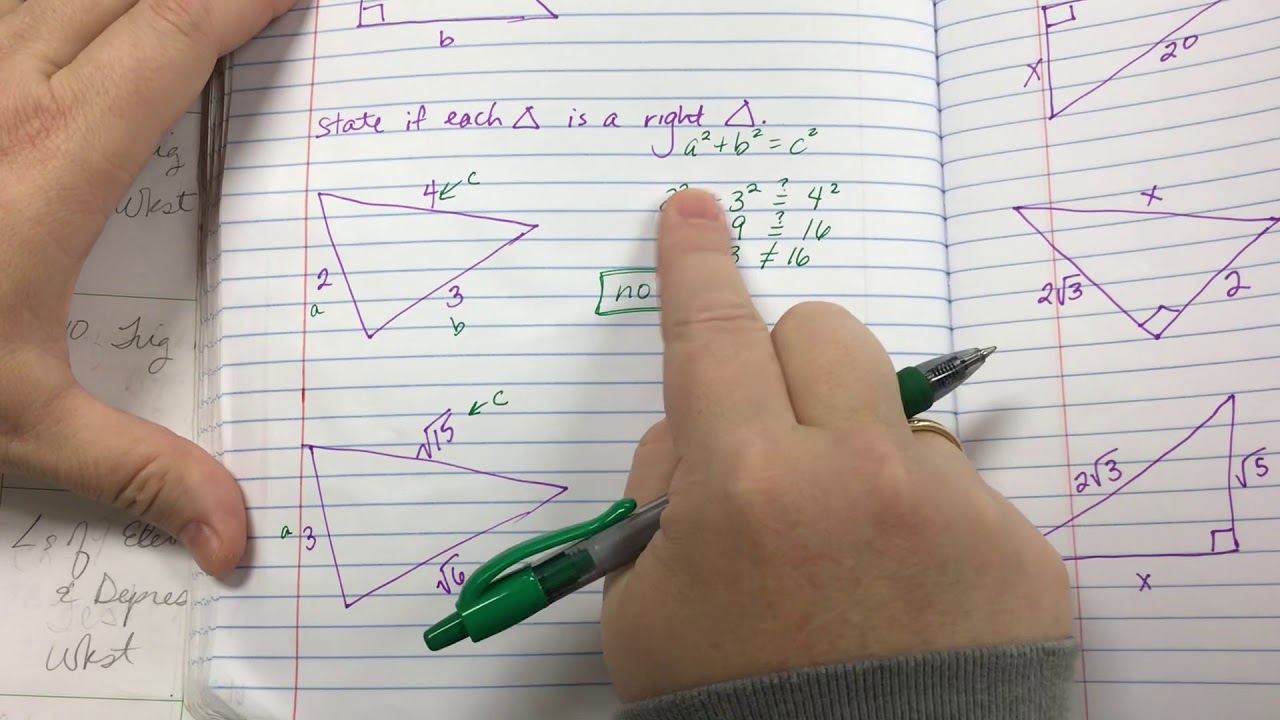 b
State if each △ is a right △.
a² + b² = c²
4 ← c
2
a
3
b
3² ≟ 4²
9 ≟ 16
3 ≠ 16
no
√15 ← c
a 3
√6
x
20
x
2√3
2
2√3
√5
x
Wkst
Trig
& Depres
Wkst